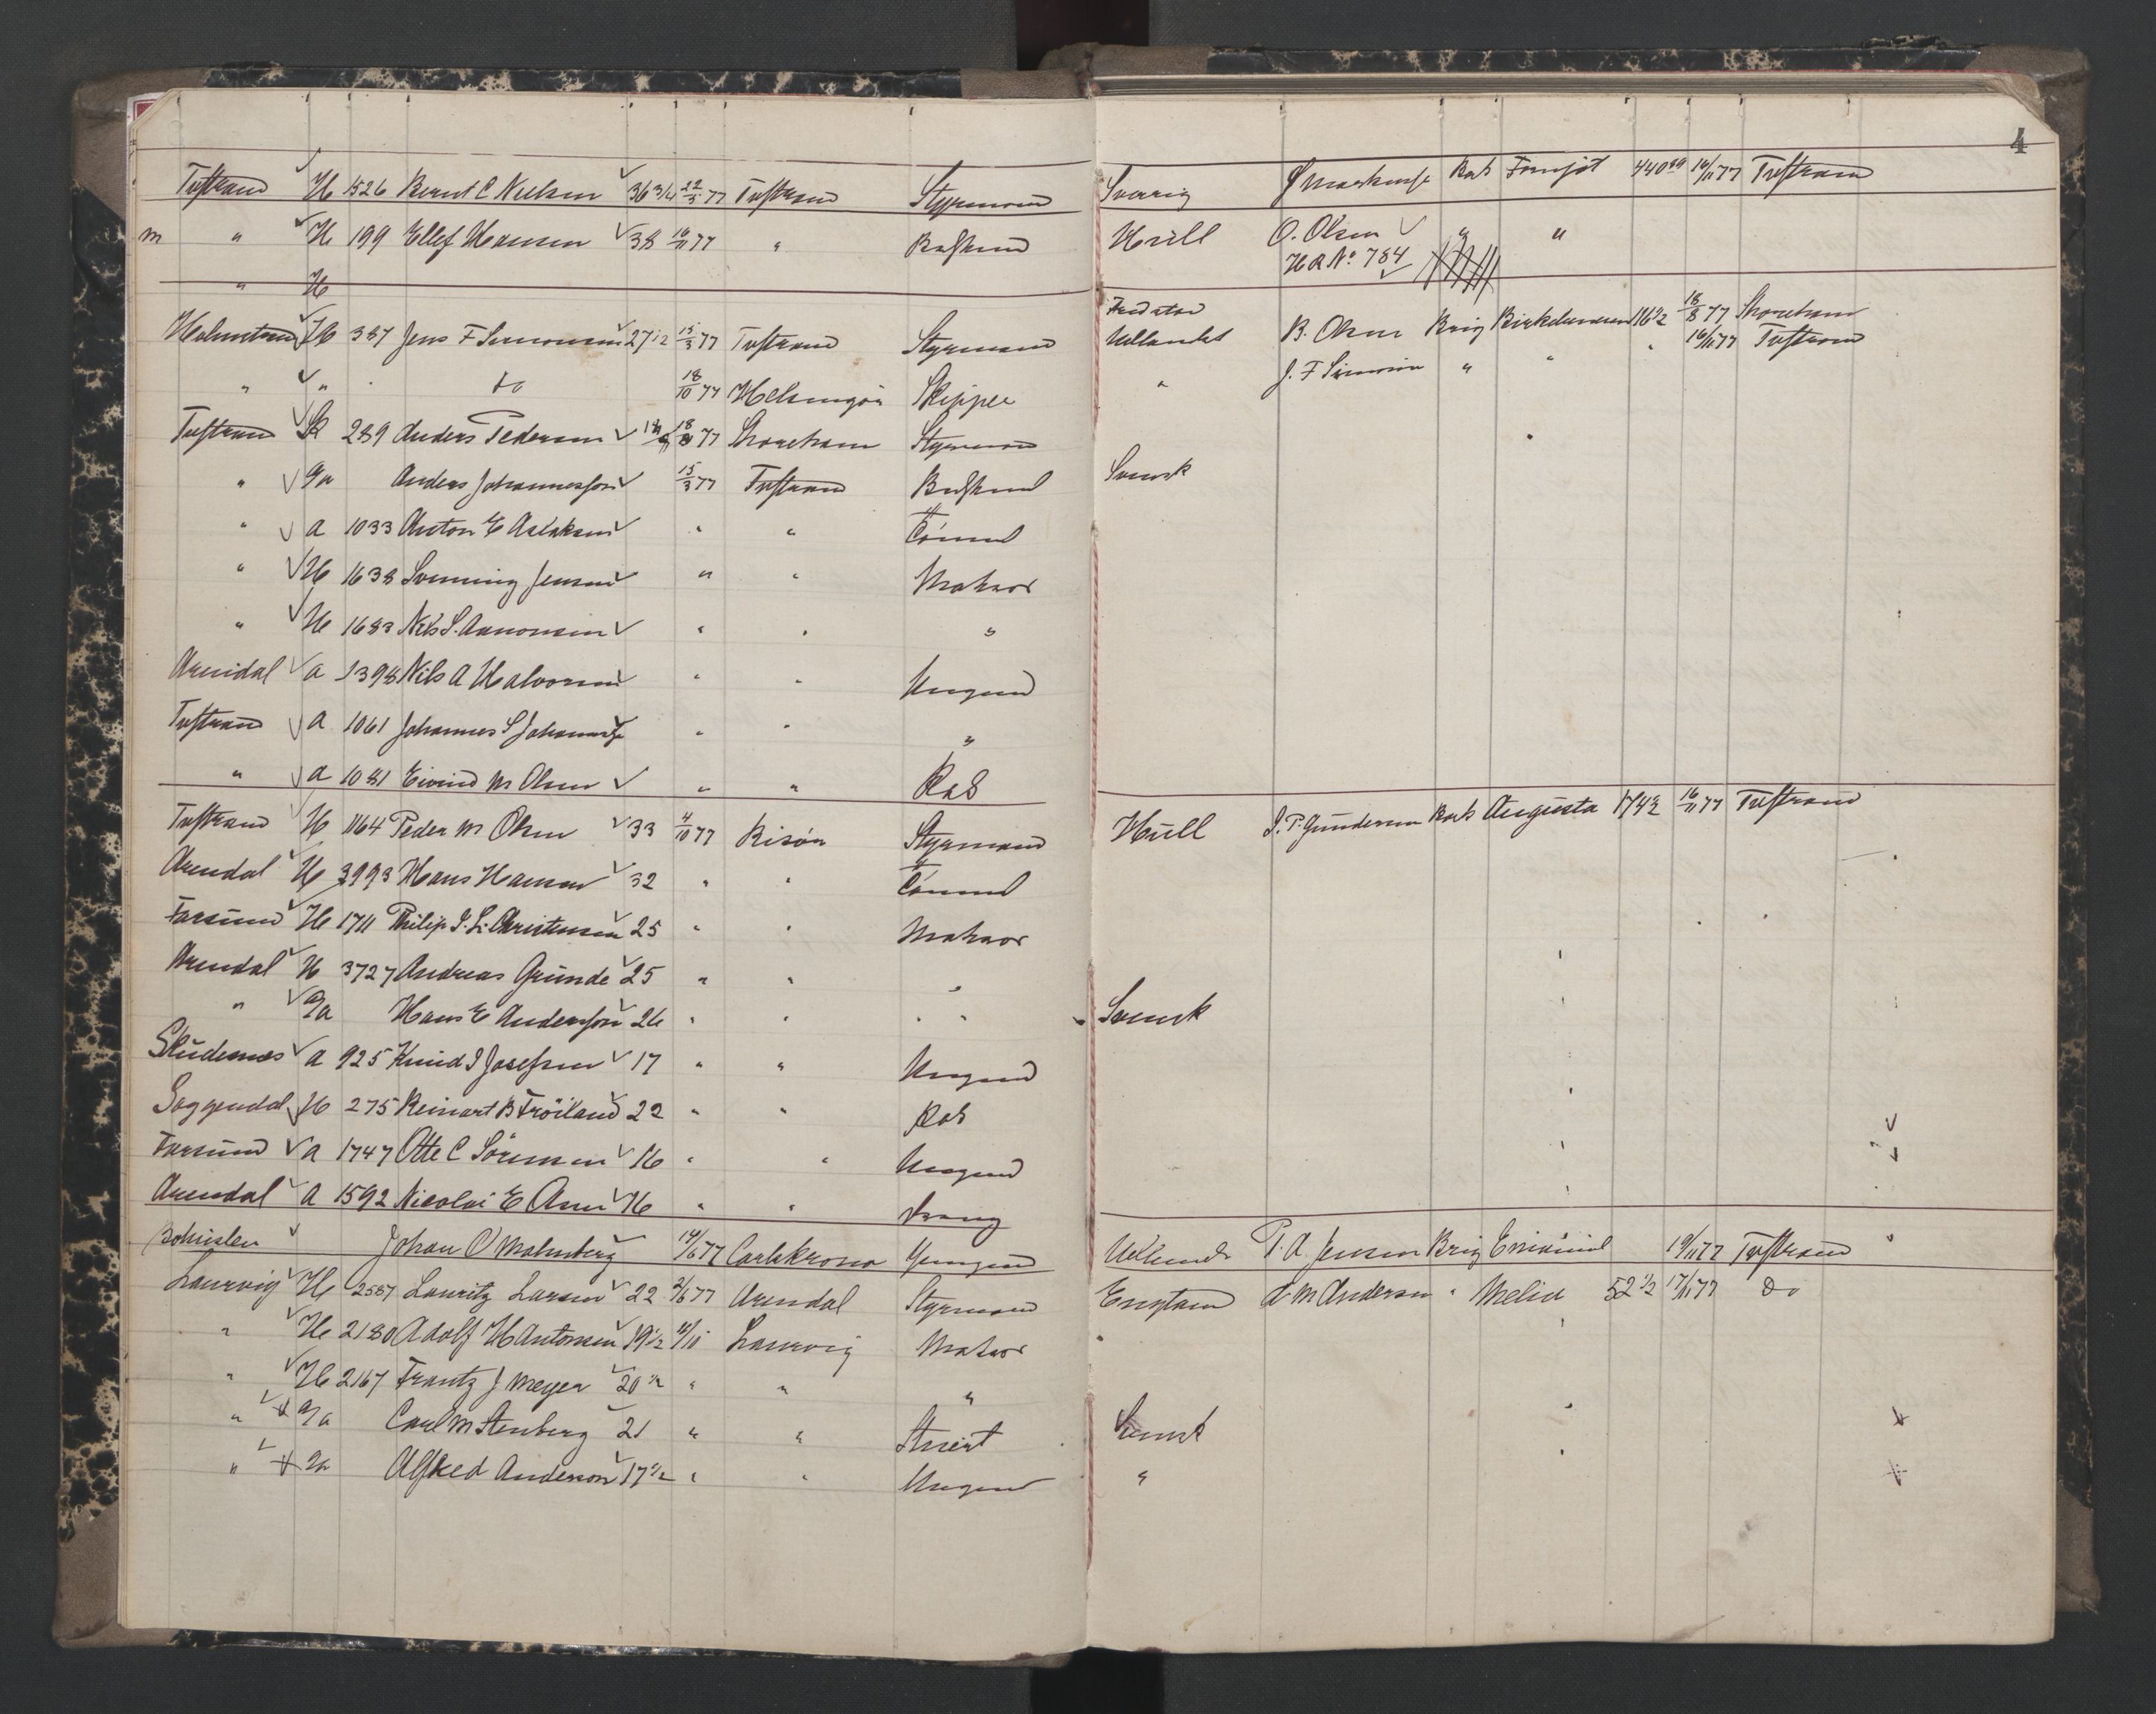 4
Tvstrand H 1526 Bernt C Nielsen 36 3/4 22/5 77 Tvstrand Styrmand Sverrig Bark Fornjot 440 89 16/11 77 Tvstrand
m " H 199 Ellef Hansen 38 16/11 77 " Baadsmd Hull O. Olsen " "
H R No 784
" H
Fredstad
Holmstrand H 387 Jens F Simonsen 27 1/2 15/3 77 Tvstrand Styrmand Udlandet B. Olsen Brig 116 1/2 18/8 77 Shoreham
" " do 18/10 77 Helsingør Skipper " J. F Simonsen " " " 16/11 77 Tvstrand
Tvstrand Sk 289 Anders Pedersen 18/8 77 Shoreham Styrmand
" a/a Anders Johannesson 15/3 77 Tvstrand Baadsmd Svensk
" a 1033 Anton E Aslaksen " " Tømmd
" H 1638 Svenning Jensen " " Matros
" H 1683 Nils S. Aanonsen " " "
Arendal a 1398 Nils A Halvorsen " " Ungmd
Tvstrand a 1061 Johannes S " " "
" a 1081 Eivind M Olsen " " Kok
Tvstrand H 1164 Peder M Olsen 33 4/10 77 Risör Styrmand Hull J. P. Gundersen Bark Augusta 174 1/2 16/11 77 Tvstrand
Arendal H 3993 Hans Hansen 32 " " Tømmd
Farsund H 1711 Philip J. L. Christensen 25 " " Matros
Arendal H 3727 Andreas Grunde 25 " " "
" a/a Hans E Andersson 26 " " " Svensk
Skudesnes a 925 Knud J Josefsen 17 " " Ungmd
Soggendal H 275 Reinart B Fröiland 22 " " Kok
Farsund a 1747 Otte C Sörensen 16 " " Ungmd
Arendal A 1592 Nicolai E Olsen 16 " " Dreng
Bohuslen Johan O Malmberg 14/6 77 Carlskrona Jungmd Udlandet P. A. Jensen Brig 19/11 77 Tvstrand
Laurvig H 2587 Lauritz Larsen 22 2/6 77 Arendal Styrmand England A. M Andersen " Melia 52 1/2 17/11 77 Do
" H 2180 Adolf H Antonsen 19 1/2 11/10 Laurvig Matros
" H 2167 Frantz J Meyer 20 1/2 " " "
" a/a Carl M Stenberg 21 " " Stuert Svensk
" a/a Alfred Anderson 17 1/2 " " Ungmd "